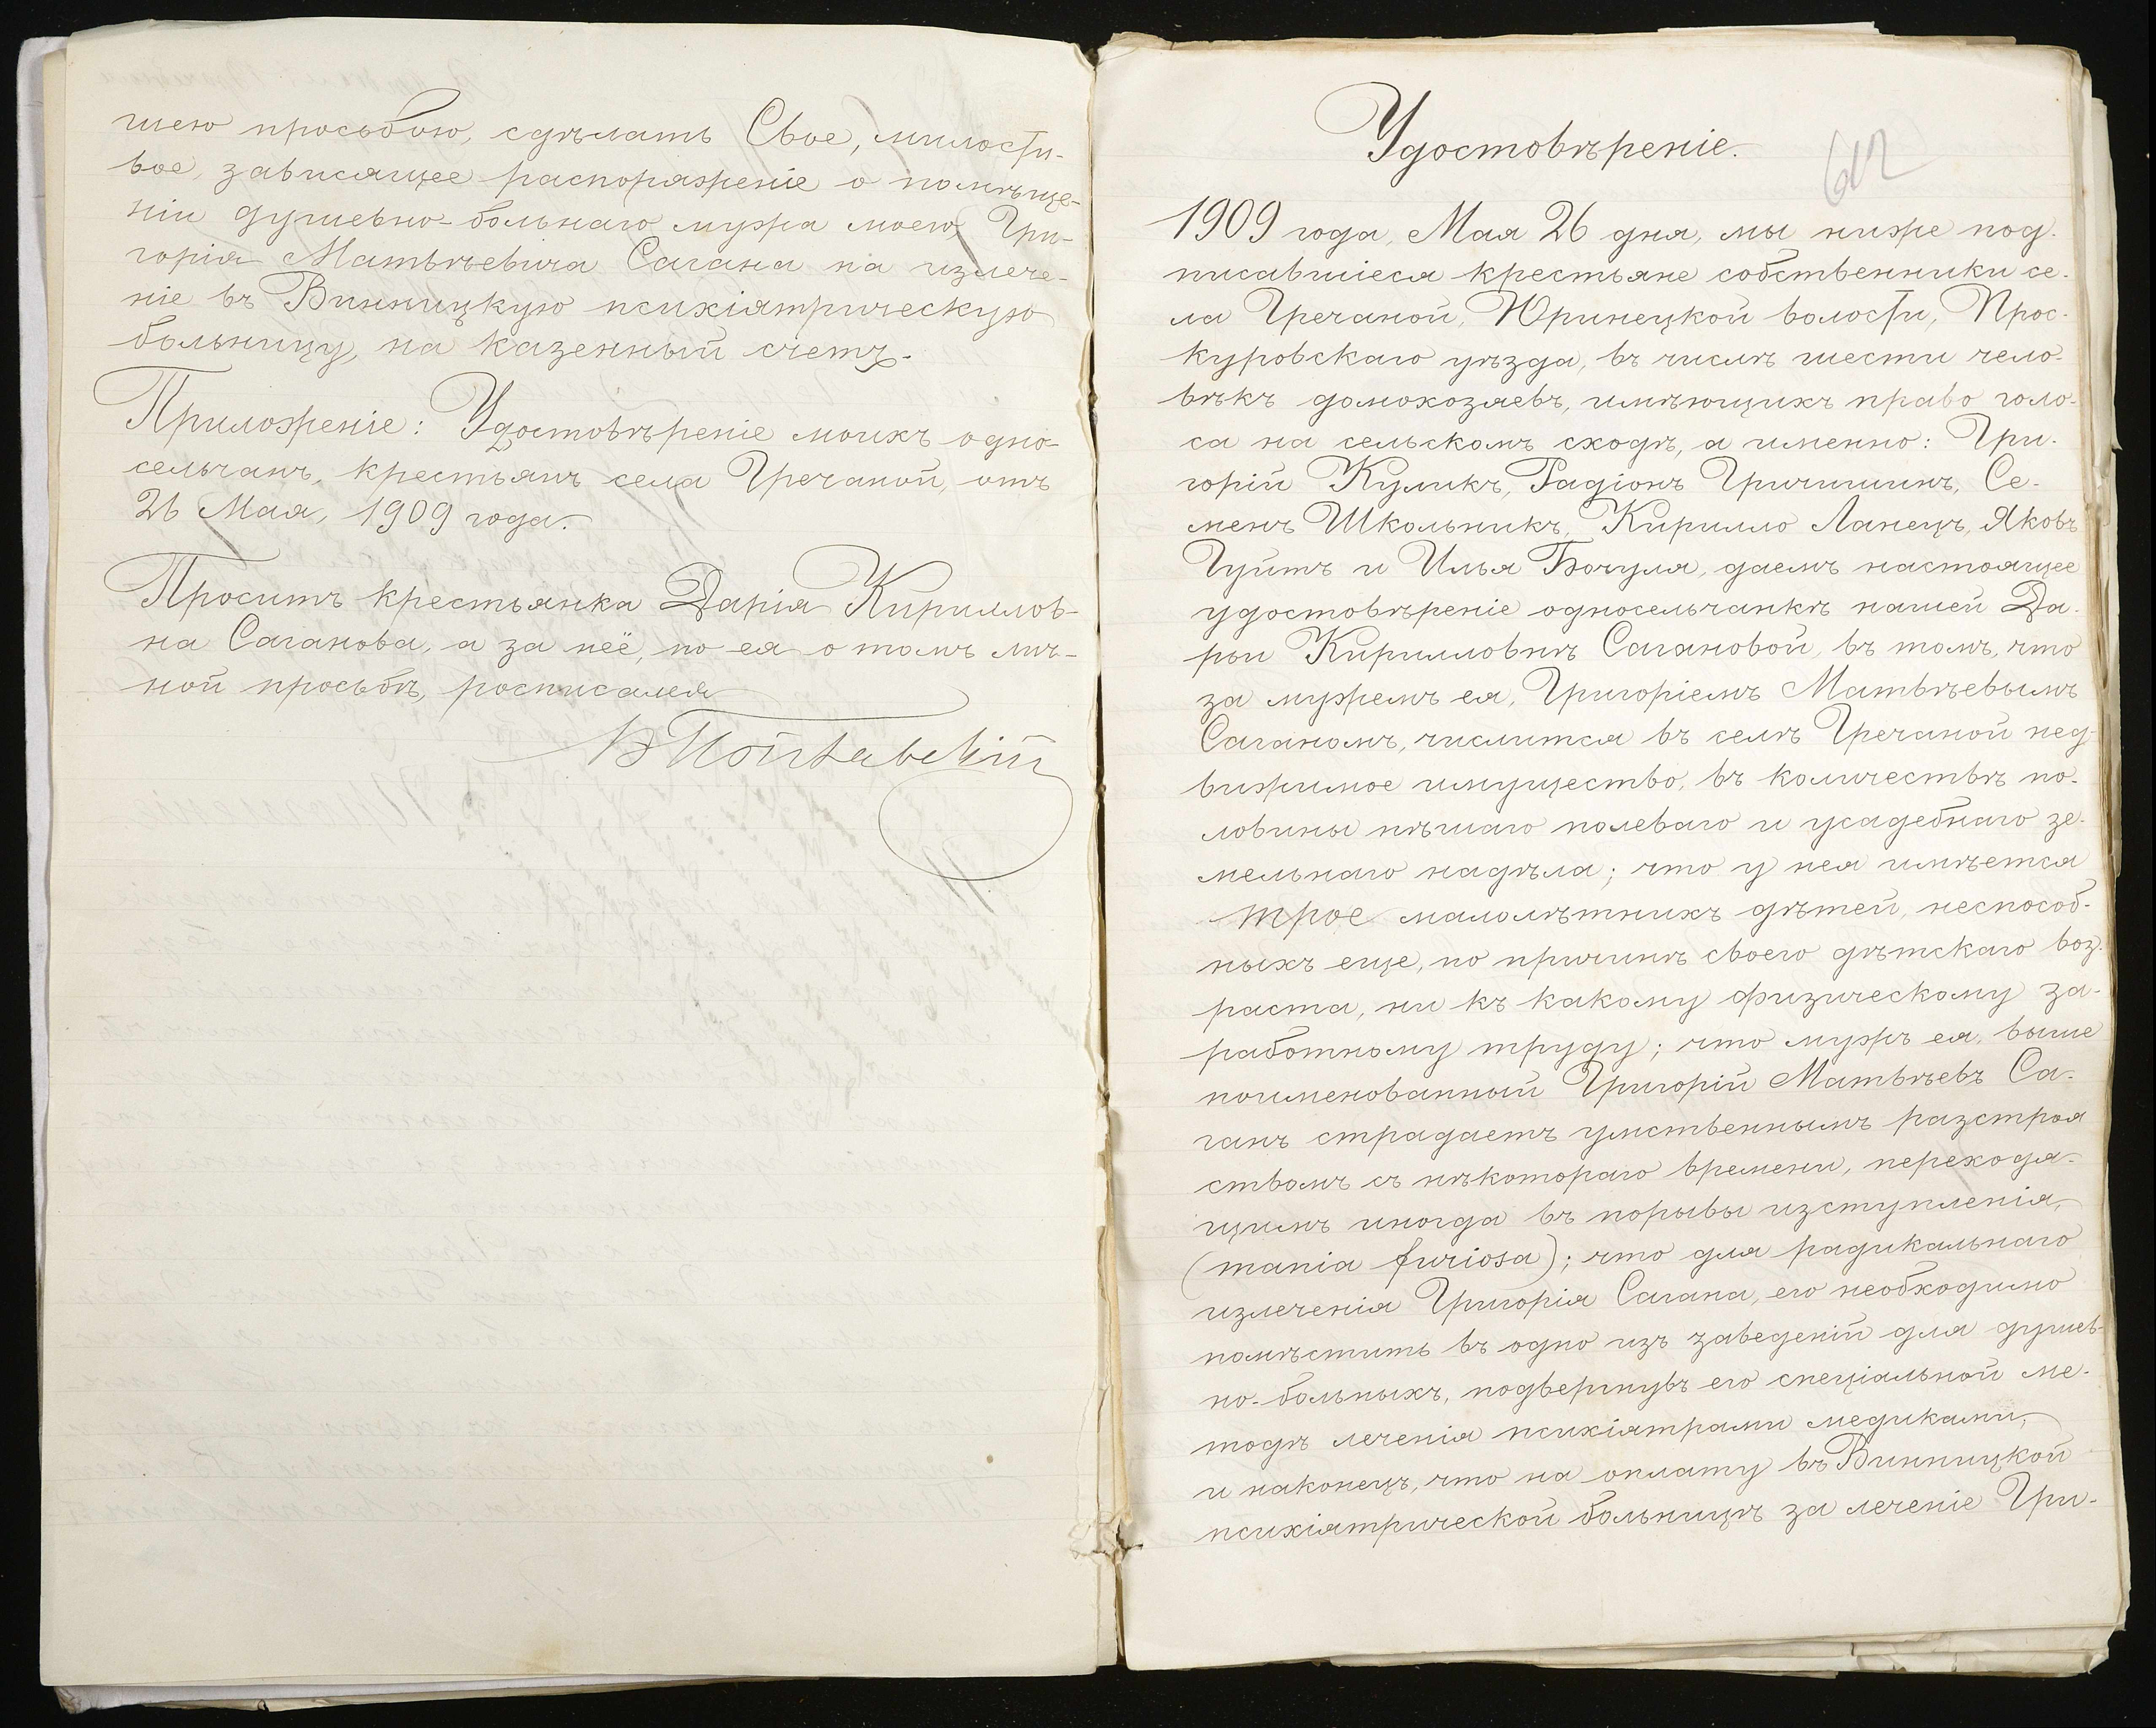 шею просьбою, сдѣлать Свое, милости-
вое, зависящее распоряженіе о помѣще-
ніи душевно-больнаго мужа моего, Гри-
горія Матвѣевича Сагана на излече-
ніе въ Винницкую психіятрическую
больницу, на казенный счетъ.
Приложеніе: Удостовѣреніе моихъ одно-
сельчанъ, крестьянъ села Гречаной, отъ
26 Мая, 1909 года.
Проситъ крестьянка Дарія Кириллов-
на Саганова, а за неё, по ея о томъ лич-
ной просьбѣ, росписался
Удостовѣреніе.
612
1909 года, Мая 26 дня, мы ниже под-
писавшіеся крестьяне собственники се-
ла Гречаной, Юринецкой волости, Прос-
куровскаго уѣзда, въ числѣ шести чело-
вѣкъ домохозяевъ, имѣющихъ право голо-
са на сельскомъ сходѣ, а именно: Гри-
горій Куликъ, Радіонъ Гричишинъ, Се-
менъ Школьникъ, Кирилло Ланецъ, Яковъ
Гуйтъ и Илья Бочуля, даемъ настоящее
удостовѣреніе односельчанкѣ нашей Да-
рьи Кирилловнѣ Сагановой, въ томъ, что
за мужемъ ея, Григоріемъ Матвѣевымъ
Саганомъ, числится въ селѣ Гречаной нед-
вижимое имущество, въ количествѣ по-
ловины пѣшаго полеваго и усадебнаго зе-
мельнаго надѣла; что у нея имѣется
трое малолѣтнихъ дѣтей, неспособ-
ныхъ еще, по причинѣ своего дѣтскаго воз-
раста, ни къ какому физическому за-
работному труду; что мужъ ея, выше
поименованный Григорій Матвѣевъ Са-
ганъ страдаетъ умственнымъ разстроя
ствомъ съ нѣкотораго времени, переходя-
щимъ иногда въ порывы изступленія,
(mania furiosa); что для радикальнаго
излеченія Григорія Сагана, его необходимо
помѣстить въ одно изъ заведеній для душев-
но-больныхъ, подвергнувъ его спеціальной ме-
тодѣ леченія психіятрами медиками,
и наконецъ, что на оплату въ Винницкой
психіятрической больницѣ за леченіе Гри-